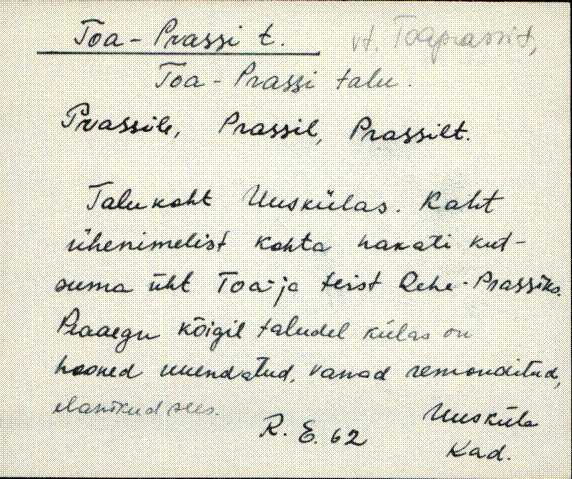 Toa-Prassi t. vt. Toaprassit,
Toa-Prassi talu.
Prassile, Prassil, Prassilt.
Talukoht Uuskülas. Kaht
ühenimelist kohta hakati kut-
suma üht Toa- ja teist Rehe-Prassiks.
Praaegu kõigil taludel külas on
hooned uuendatud, vanad remonditud,
elanikud sees.
R. E. 62 Uusküla
Kad.